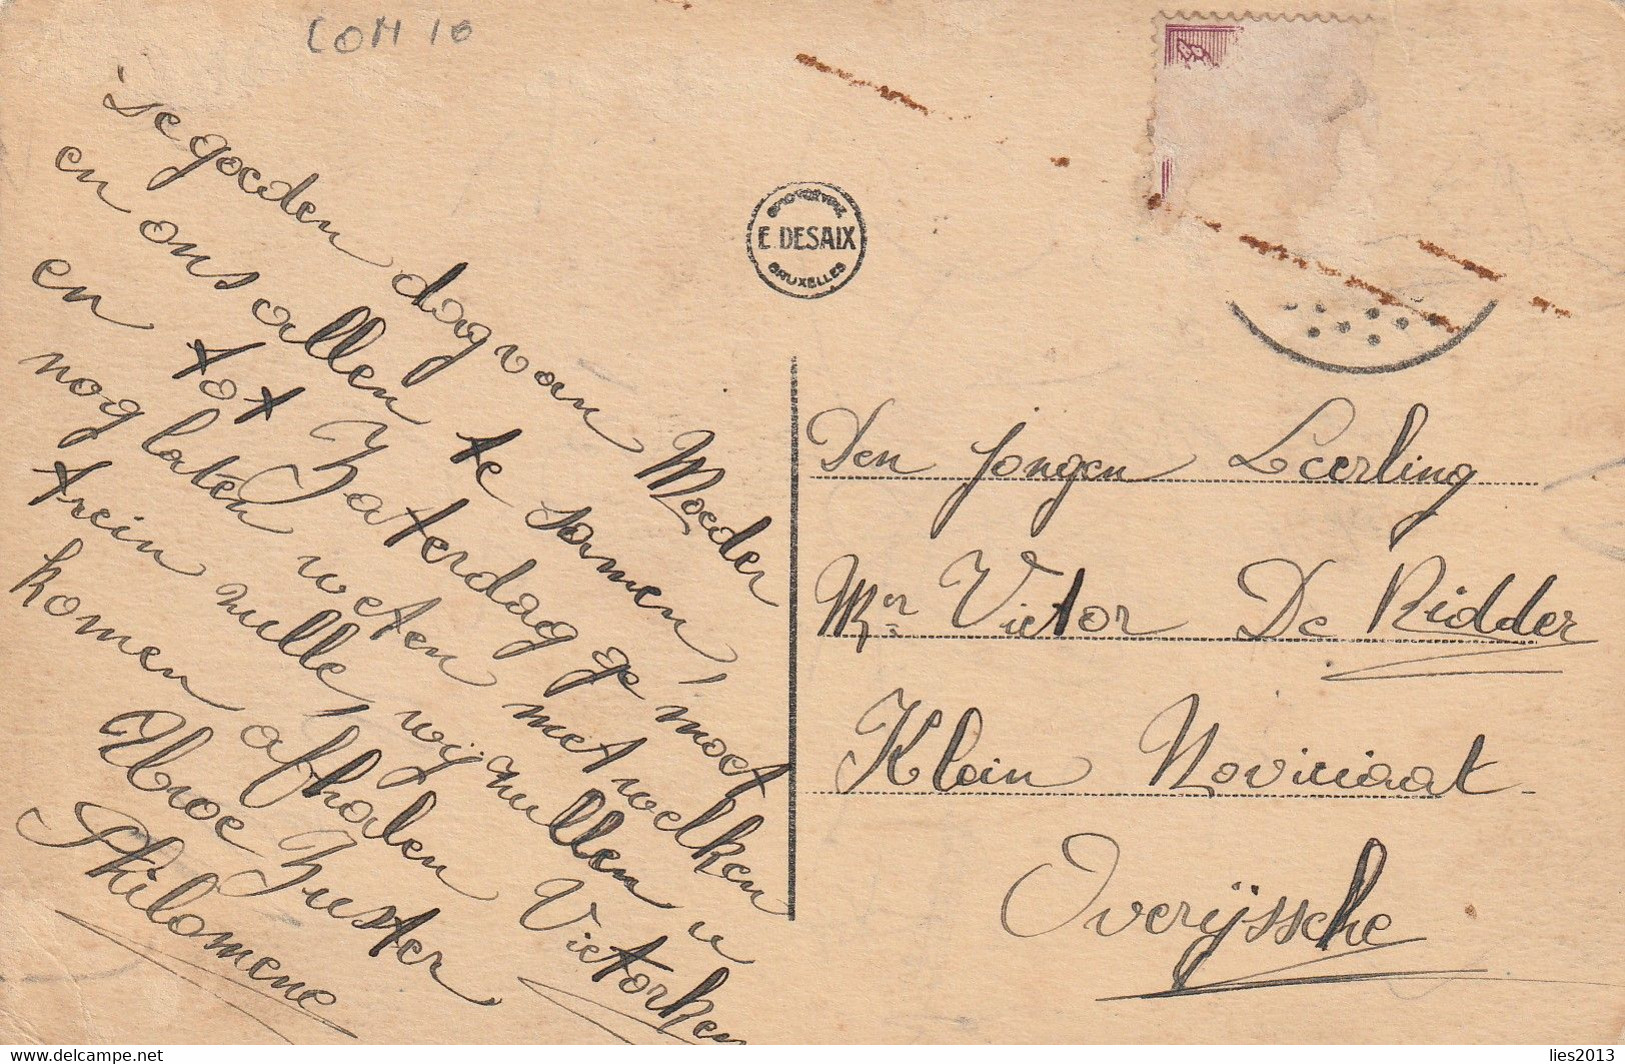 COM 10
'se goeden dag van Moeder
en ons allen te samen,
en tot Zaterdag ge moet
nog laten weten met welken
trein zulle, wij zullen u
komen afhalen Victorken
Uwe Zuster
Philomene
E. DESAIX
BRUXELLES
Den jongen Leerling
Mr Victor De Ridder
Klein Noviciaat
Overijssche
lies2013